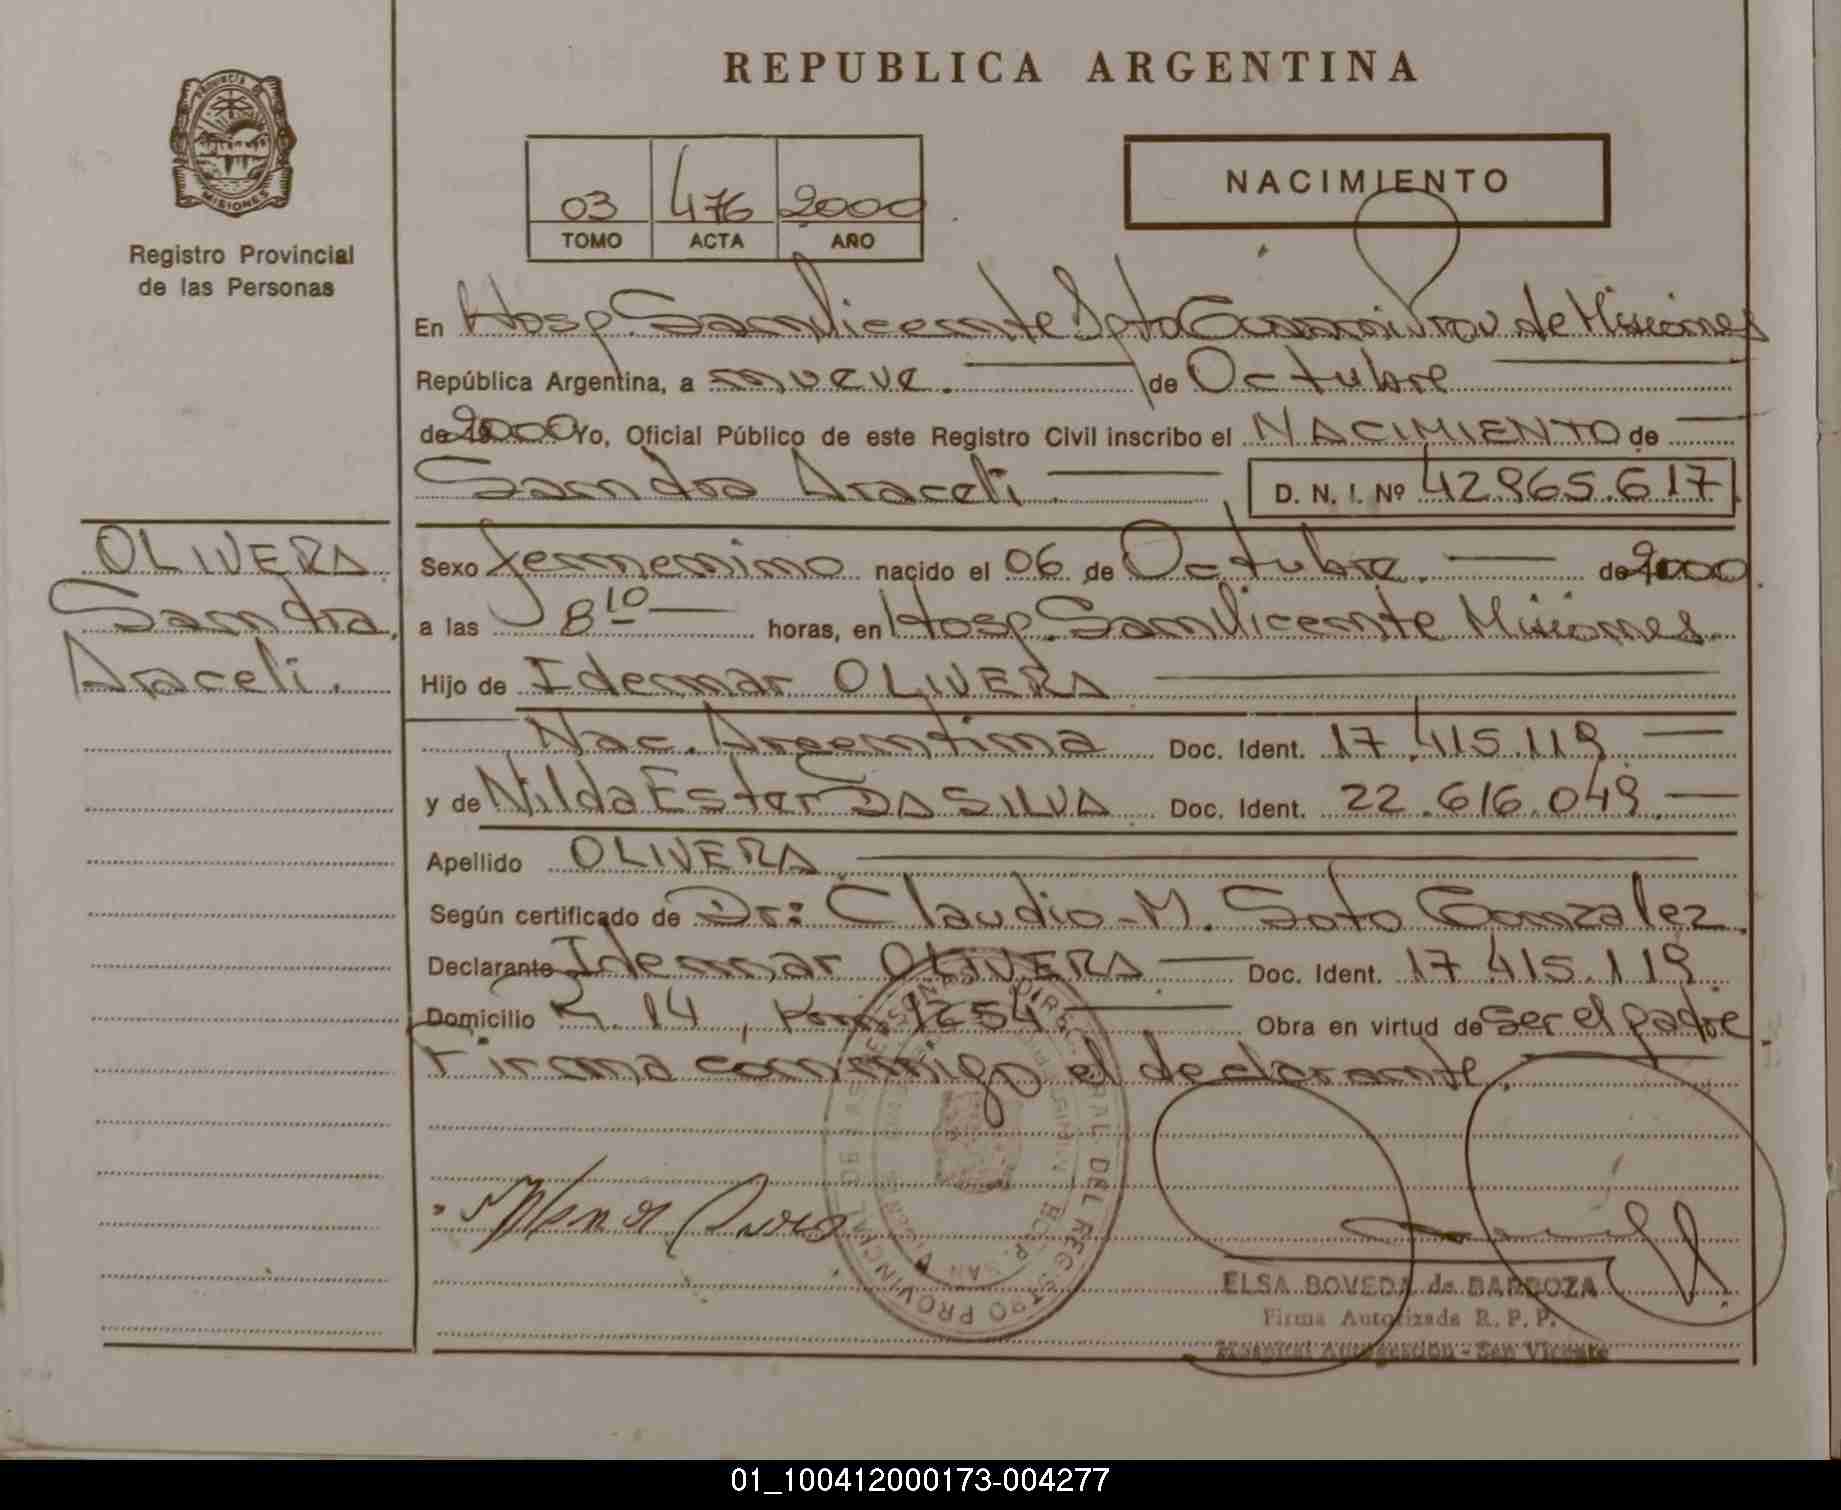 REPUBLICA ARGENTINA
PROVINCIA DE MISIONES
Registro Provincial
de las Personas
03 476 2000
TOMO ACTA AÑO
NACIMIENTO
En Hosp. San Vicente Dpto Guaraní Prov de Misiones
República Argentina, a nueve. de Octubre
de 2000 Yo, Oficial Público de este Registro Civil inscribo el NACIMIENTO de
Sandra Araceli. D. N. I. Nº 42.965.617
OLIVERA
Sandra
Araceli.
Sexo femenino nacido el 06 de Octubre. de 2000.
a las 8 10 horas, en Hosp. San Vicente Misiones.
Hijo de Idemar OLIVERA
Nac. Argentina Doc. Ident. 17.415.119
y de Nilda Ester DA SILVA Doc. Ident. 22.616.049.
Apellido OLIVERA
Según certificado de Dr: Claudio M. Soto Gonzalez.
Declarante Idemar OLIVERA Doc. Ident. 17.415.119
Domicilio R. 14, Km 1254 Obra en virtud de ser el padre
Firma conmigo el declarante.
ELSA BOVEDA de BARBOZA
Firma Autorizada R. P. P.
Hospital Autogestión - San Vicente
01_100412000173-004277